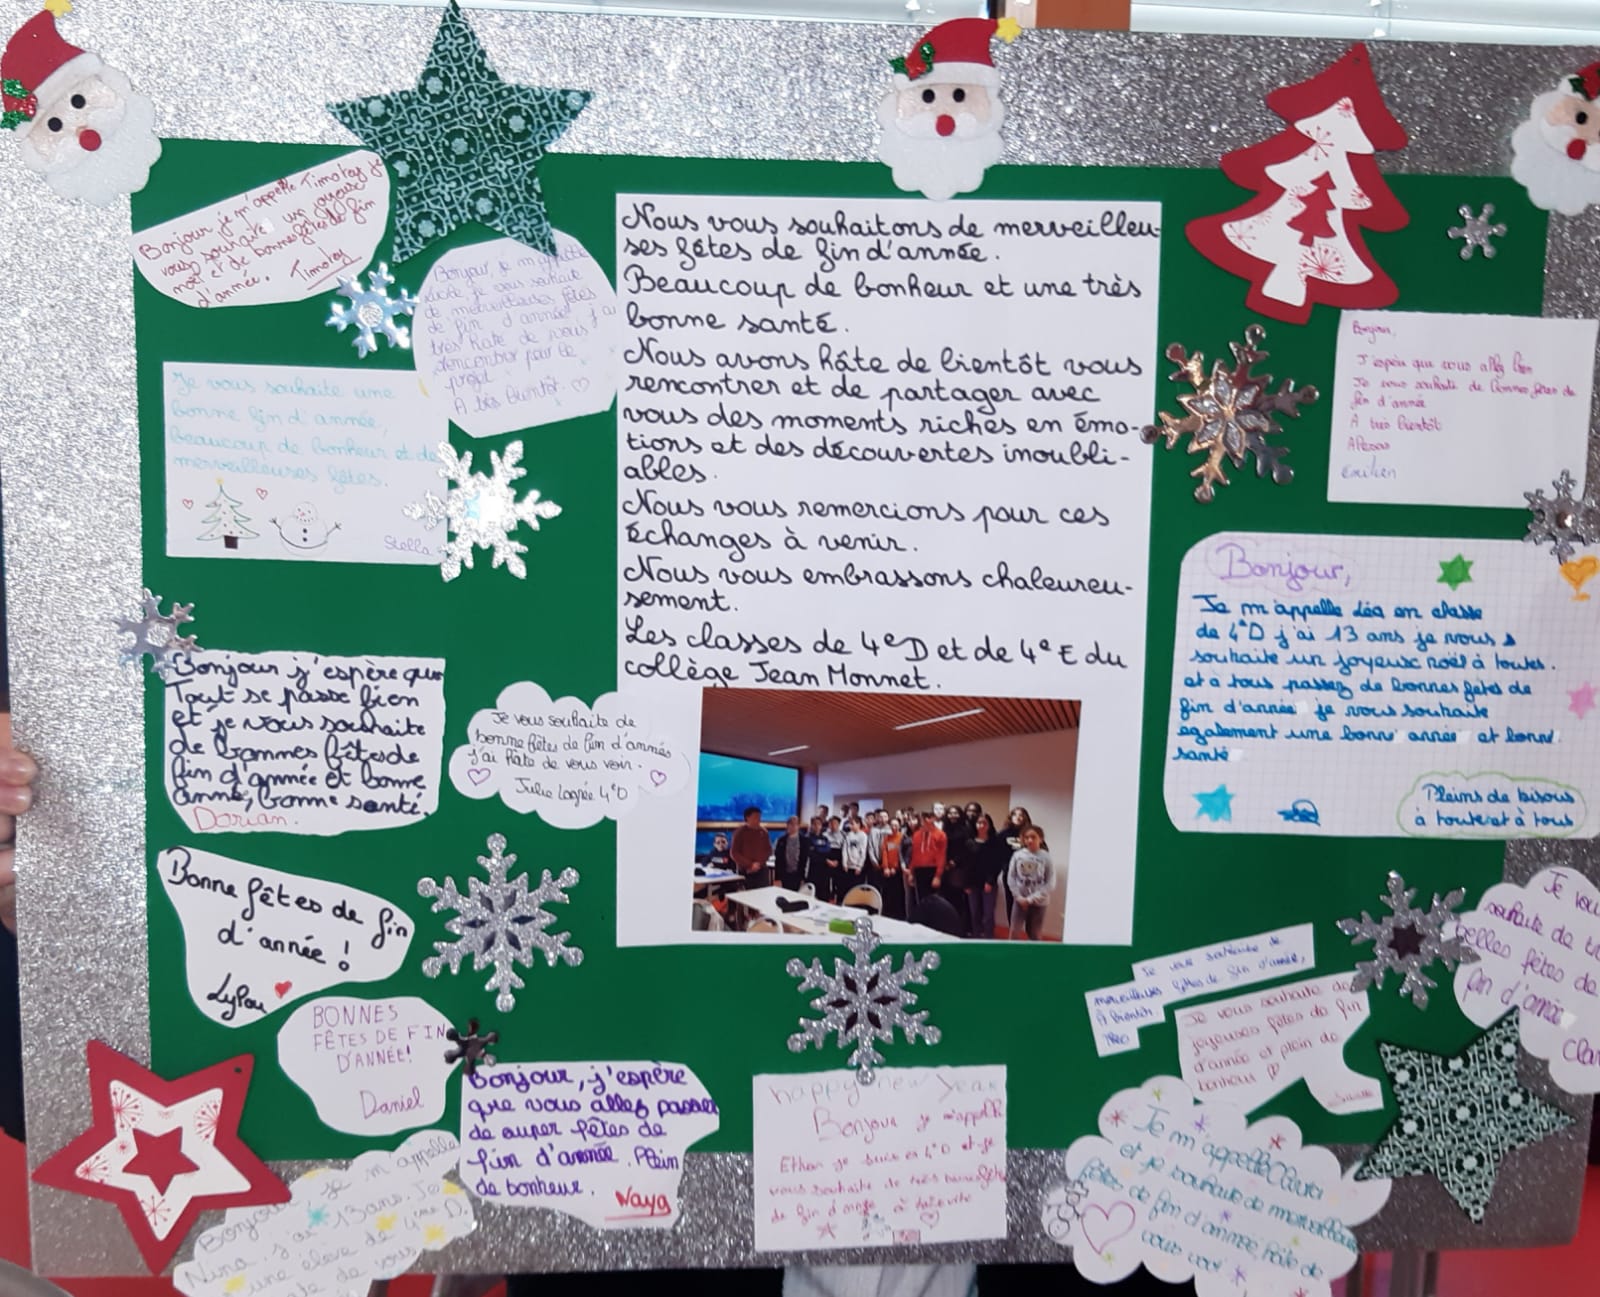 Bonjour je m'appelle Timotey je
vous souhaite un joyeux
noël et de bonnes fêtes de fin
d'année. Timotey
Bonjour, je m'appelle
je vous souhaite
de merveilleuses fêtes
de fin d'année, j'ai
très hâte de vous
rencontrer pour le
projet
A très bientôt. ♡
Je vous souhaite une
bonne fin d'année,
beaucoup de bonheur et de
merveilleuses fêtes.
Stella
Bonjour j'espère que
Tout se passe bien
et je vous souhaite
de bonnes fêtes de
fin d'année et bonne
année, bonne santé.
Dorian.
Je vous souhaite de
bonne fêtes de fin d'années
j'ai hâte de vous voir.
Julie 4°D
Bonne fêtes de fin
d'année !
Lylou
BONNES
FÊTES DE FIN
D'ANNÉE!
Daniel
Bonjour, je m'appelle
Nina, j'ai 13 ans. Je
une élève de 4ème D.
de vous
Bonjour, j'espère
que vous allez passer
de super fêtes de
fin d'année. Plein
de bonheur. Naya
Nous vous souhaitons de merveilleu-
ses fêtes de fin d'année.
Beaucoup de bonheur et une très
bonne santé.
Nous avons hâte de bientôt vous
rencontrer et de partager avec
vous des moments riches en émo-
tions et des découvertes inoubli-
ables.
Nous vous remercions pour ces
échanges à venir.
Nous vous embrassons chaleureu-
sement.
Les classes de 4e D et de 4e E du
collège Jean Monnet.
happy new year
Bonjour je m'appelle
Ethan je suis en 4°D et je
vous souhaite de très
de fin d'année à
Bonjour,
J'espère que vous allez bien
Je vous souhaite de bonnes fêtes de
fin d'année
A très bientôt
Emilien
Bonjour,
Je m'appelle Léa en classe
de 4°D j'ai 13 ans je vous
souhaite un joyeux noël à toutes.
et à tous passez de bonnes fêtes de
fin d'année je vous souhaite
egalement une bonne année et bonne
santé
Pleins de bisous
à toute et à tous
Je vous souhaite de
merveilleuses fêtes de fin d'année,
A bientôt.
Théo
Je vous souhaite de
joyeuses fêtes de fin
d'année et plein de
bonheur ♡
Je vou
souhaite de
belles fêtes de
fin d'année
Cla
Je m'appelle
et je souhaite de merveilleuses
fêtes de fin d'année, hâte de
vous voir